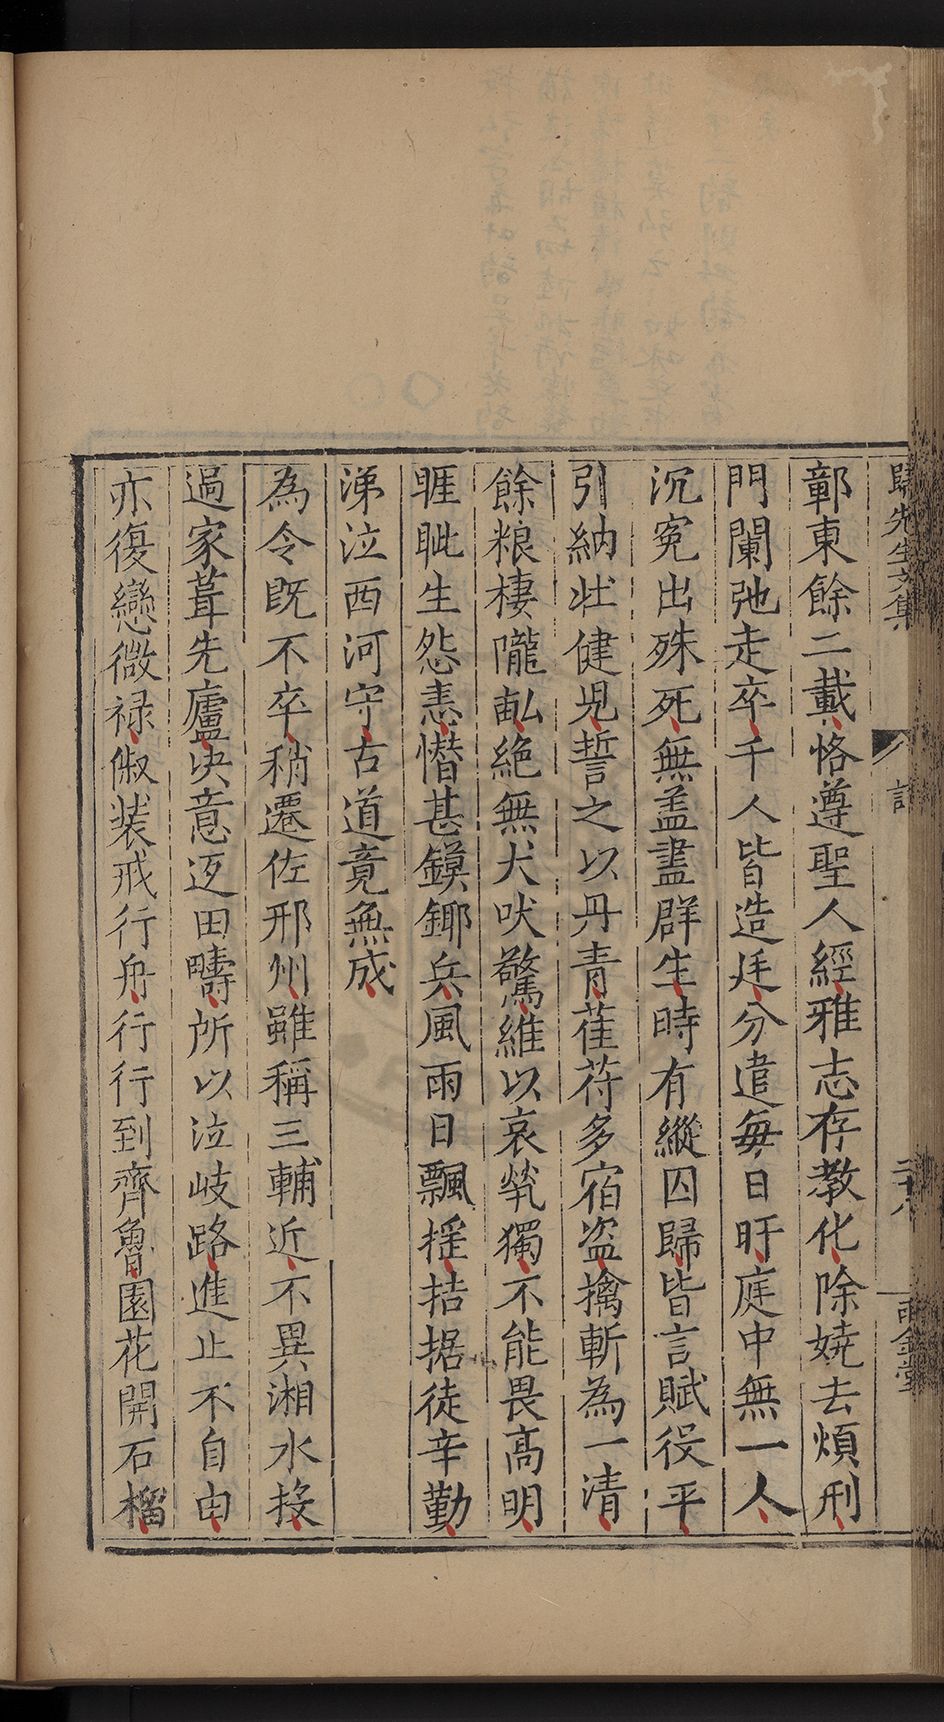 歸先生文集
詩
二十八
雨金堂
鄣東餘二載恪遵聖人經雅志存教化除嬈去煩刑
門闌弛走卒千人皆造廷分遣每日旰庭中無一人
沉冤出殊死無盖盡群生時有縱囚歸皆言賦役平
引納壮健児誓之以丹青萑苻多宿盗擒斬為一清
餘粮棲隴畆絶無犬吠驚維以哀煢獨不能畏高明
睚眦生怨恚憯甚鏌鎁兵風雨日飄揺拮据徒辛勤
涕泣西河守古道竟無成
為令既不卒稍遷佐邢州雖稱三輔近不異湘水投
過家葺先廬决意返田疇所以泣岐路進止不自由
亦復戀微禄俶装戒行舟行行到齊魯園花開石榴